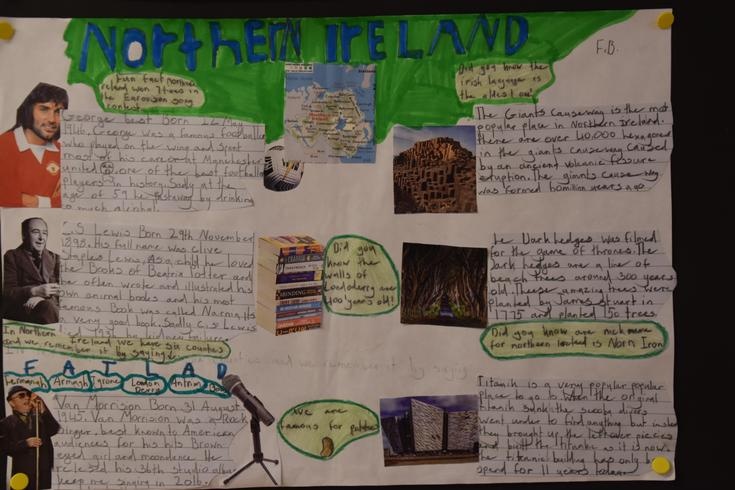 NortherN IRELAND
F.B.
Fun fact northern
ireland won 7 times in
the Eurovision song
contest
Did you know the
irish language is
the oldest one!
George best Born 22 May
1946, George was a famous footballer
who played on the wing and spent
most of his career at Manchester
united one of the best football
players in history. Sadly at the
age of 59 he by drinking
so much alcohol.
The Giants Causeway is the most
popular place in Northern Ireland.
there are over 40,000 hexagons
in the giants causeway caused
by an ancient volcanic fissure
eruption. The giants cause way
was formed 60 million years ago.
C.S Lewis Born 29th November
1898. His full name was clive
Staples Lewis. As a child he loved
the Books of Beatrix Potter and
he often wrote and illustrated his
own animal books and his most
famous Book was called Narnia. It's
a very good book. Sadly C.S Lewis
Did you
know the
walls of
Londonderry are
400 years old!
The Dark hedges was filmed
for the game of thrones. The
dark hedges are a line of
beech trees around 300 years
old. These amazing trees were
planted by James Stuart in
1775 and planted 150 trees.
In Northern
Ireland we have six counties
and we remember it by saying
and we remember it by saying
F A T L A D
Fermanagh Armagh Tyrone London Derry Antrim Down
Did you know are nick name
for northern ireland is Norn Iron
Van Morrison Born 31 August
1945. Van Morrison was a Rock
singer best known to American
audiences for his hits Brown
eyed girl and moondance. He
released his 36th studio album
keep me singing in 2016.
We are
famous for potatoes
Titanik is a very popular popular
place to go to when the original
titanik sunk the scuby divers
went under to find anything but instead
they brought up the left over pieces
and built the titanke as it is now
the titanic building has only been
opend for 11 years today.